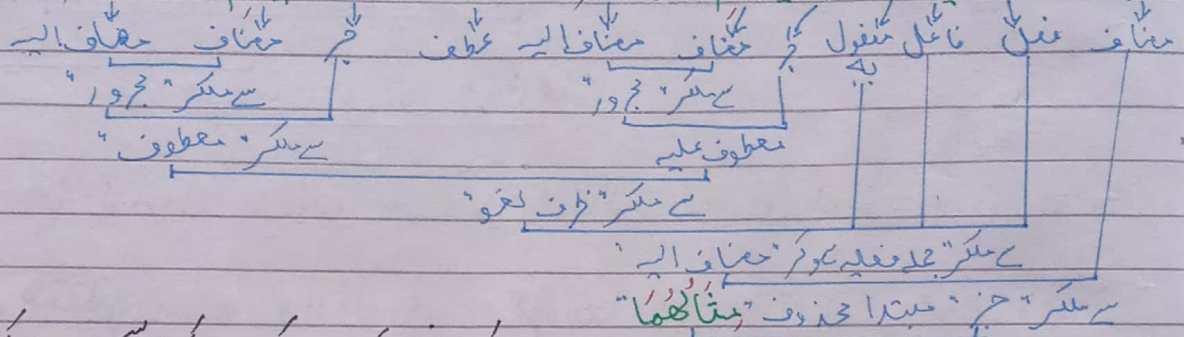 مضاف فعل فاعل مفعول بہ جر مضاف مضاف الیہ عطف جر مضاف مضاف الیہ
سے ملکر "مجرور" سے ملکر "مجرور"
معطوف علیہ سے ملکر "معطوف"
سے ملکر "ظرف لغو"
سے ملکر "جملہ فعلیہ ہوکر "مضاف الیہ"
سے ملکر "خبر" مبتدا محذوف "مِثَالُهُمَا"